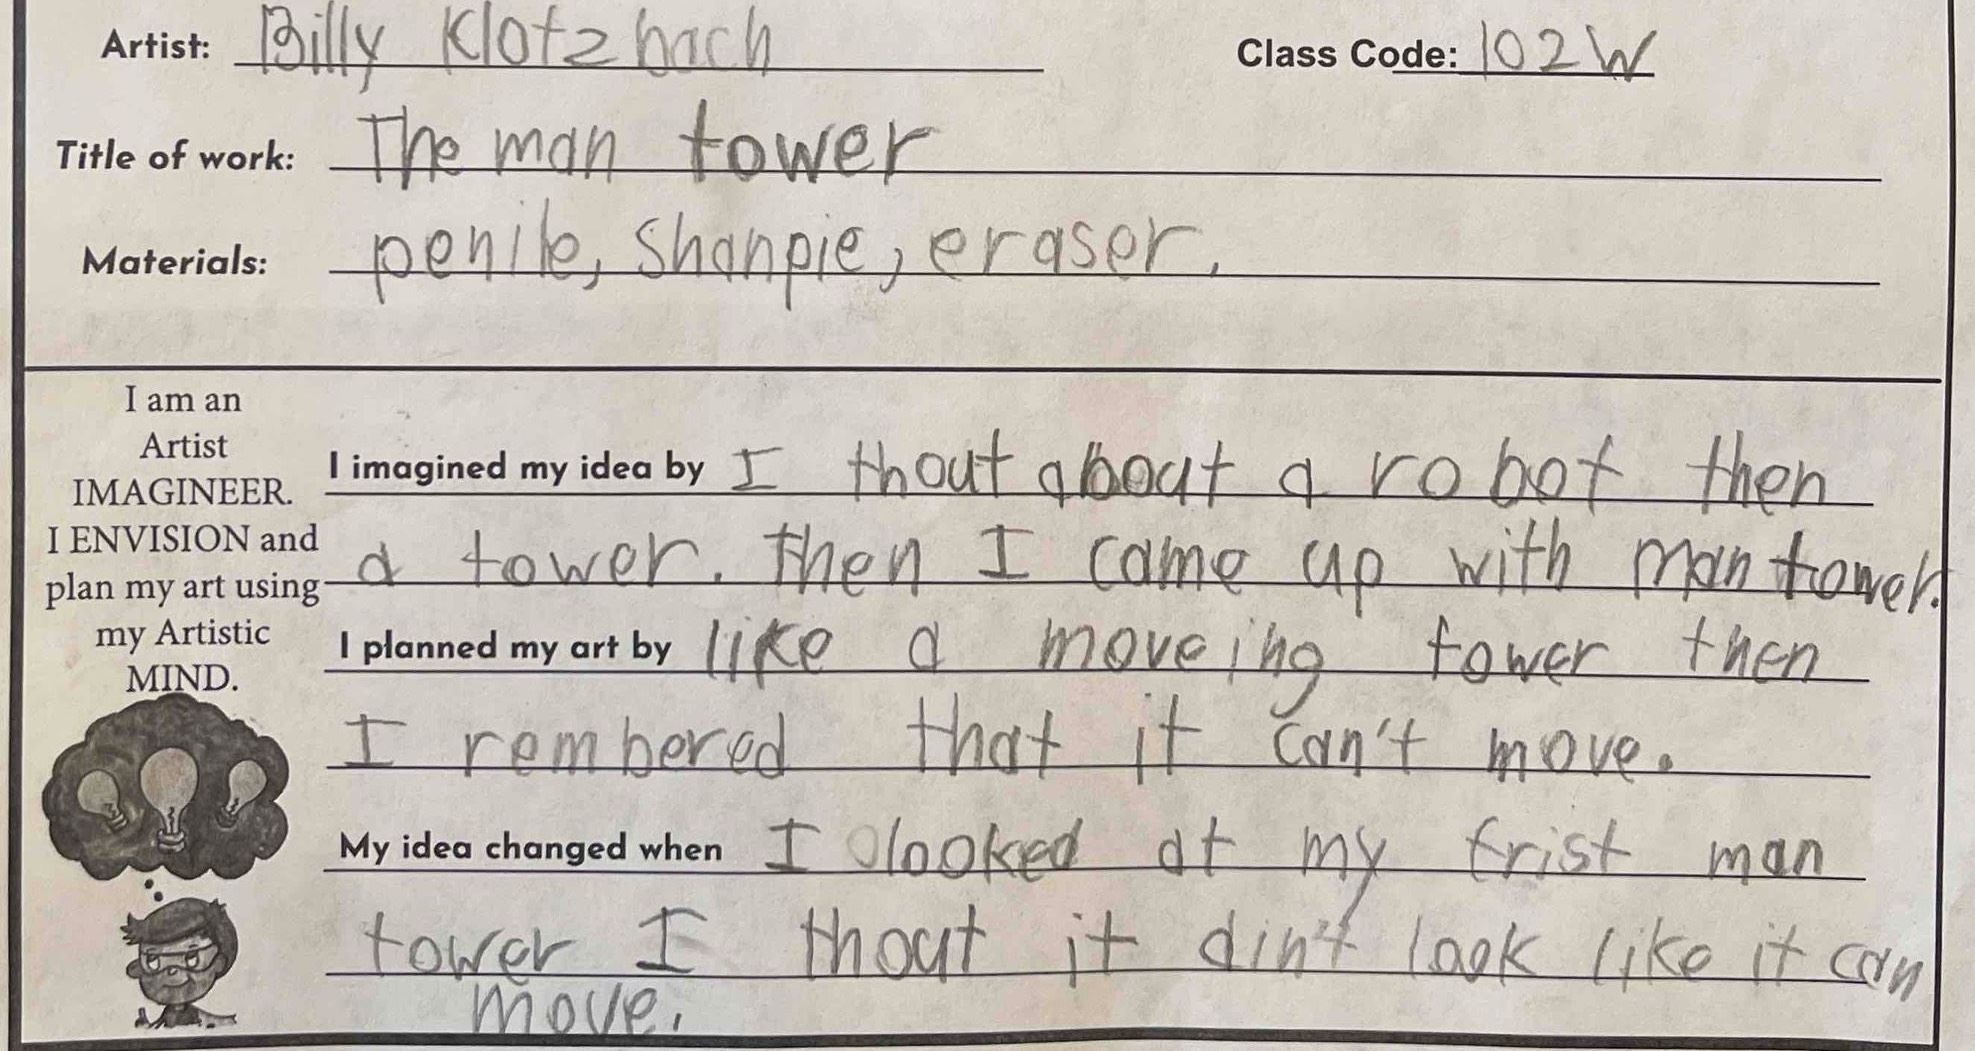 Artist: Billy Klotzbach Class Code: 102W
Title of work: The man tower
Materials: penile, shanpie, eraser.
I am an
Artist
IMAGINEER.
I ENVISION and
plan my art using
my Artistic
MIND.
I imagined my idea by I thout about a robot then
a tower. then I came up with man tower.
I planned my art by like a moveing tower then
I rembered that it can't move.
My idea changed when I looked at my frist man
tower I thout it din't look like it can
move.